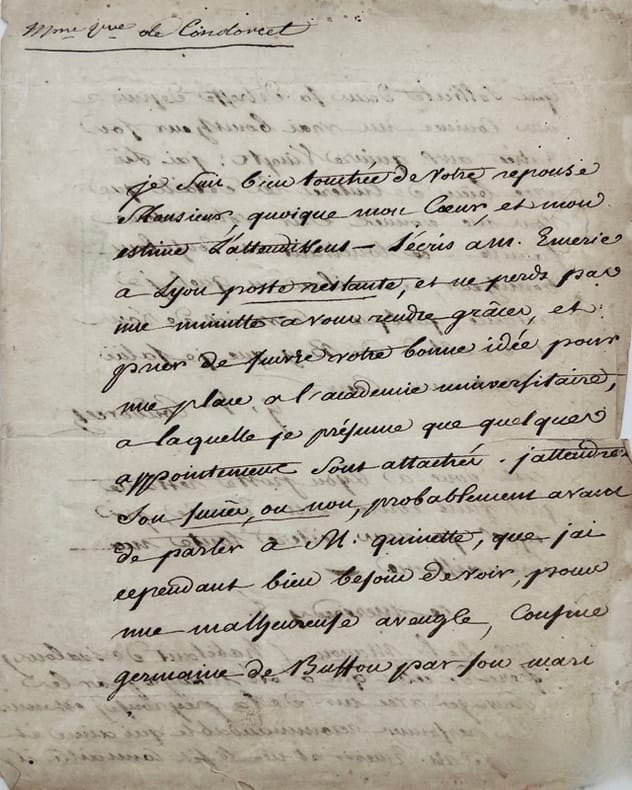 Mme Vve de Condorcet
je suis bien touchée de votre reponse
Monsieur, quoique mon Cœur, et mon
estime L'attendissent — J'écris a m. Emeric
a Lyon poste restante, et ne perds pas
une minutte a vous rendre grâces, et
prier de suivre votre bonne idée pour
une place a l'academie universitaire,
a laquelle je présume que quelques
appointemens sont attachés. j'attendrai
son succès, ou non, probablement avant
de parler à M. quinette, que j'ai
cependant bien besoin de voir, pour
une malheureuse aveugle, Cousine
germaine de Buffon par son mari